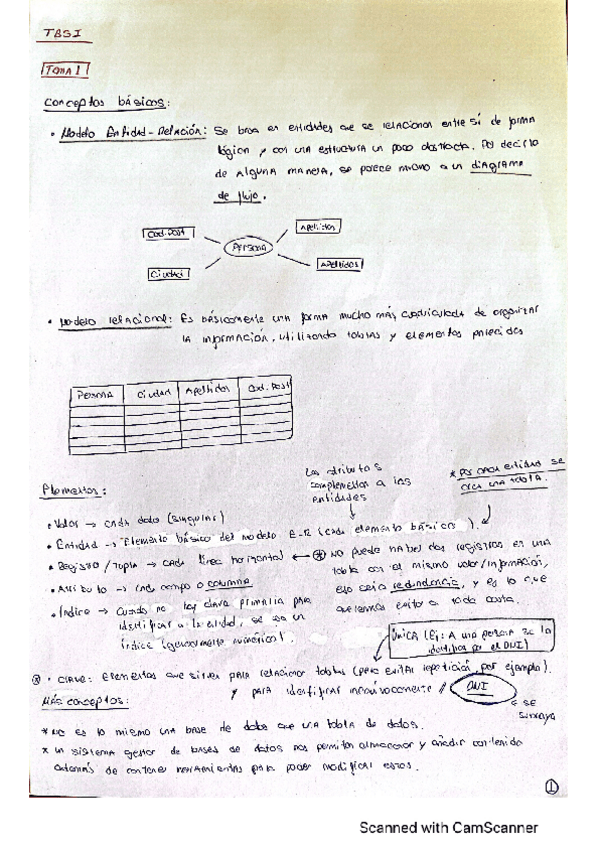 TBSI
TEMA 1
Conceptos básicos:
• Modelo Entidad-Relación: Se basa en entidades que se relacionan entre sí de forma
lógica y con una estructura un poco abstracta. Por decirlo
de alguna manera, se parece mucho a un diagrama
de flujo.
Cod. Post
Apellidos
Persona
Ciudad
Apellidos
• Modelo relacional: Es básicamente una forma mucho más cuadriculada de organizar
la información, utilizando tablas y elementos parecidos
Persona Ciudad Apellidos Cod. Post
Los atributos
complementan a las
entidades
* Por cada entidad se
crea una tabla.
Elementos:
• Valor → cada dato (singular)
• Entidad → Elemento básico del modelo E-R (cada elemento básico).
• Registro / Tupla → cada línea horizontal ← * No puede haber dos registros en una
tabla con el mismo valor/información,
eso sería redundancia, y es lo que
queremos evitar a toda costa.
• Atributo → cada campo o columna
• Índice → Cuando no hay clave primaria para
identificar a la entidad, se usa un
índice (generalmente numérico).
Única Ley: A una persona se la
identifica por el DNI
* • Clave: elementos que sirven para relacionar tablas (para evitar repetición, por ejemplo).
y para identificar inequívocamente //
DNI
← se
subraya
Más conceptos:
* No es lo mismo una base de datos que una tabla de datos.
* Un sistema gestor de bases de datos nos permite almacenar y añadir contenido
además de contener herramientas para poder modificar estos.
1
Scanned with CamScanner